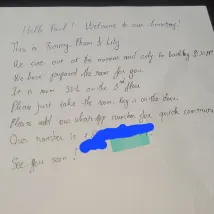 Hello Paul! Welcome to our homestay!
This is Tommy Pham & Lily
We are out at the moment and only be back by 8:30 PM
We have prepared the room for you.
It is room 302 on the 3rd floor
Please just take the room. Key is on the door.
Please add our whatsApp number for quick communi
Our number is
See you soon!